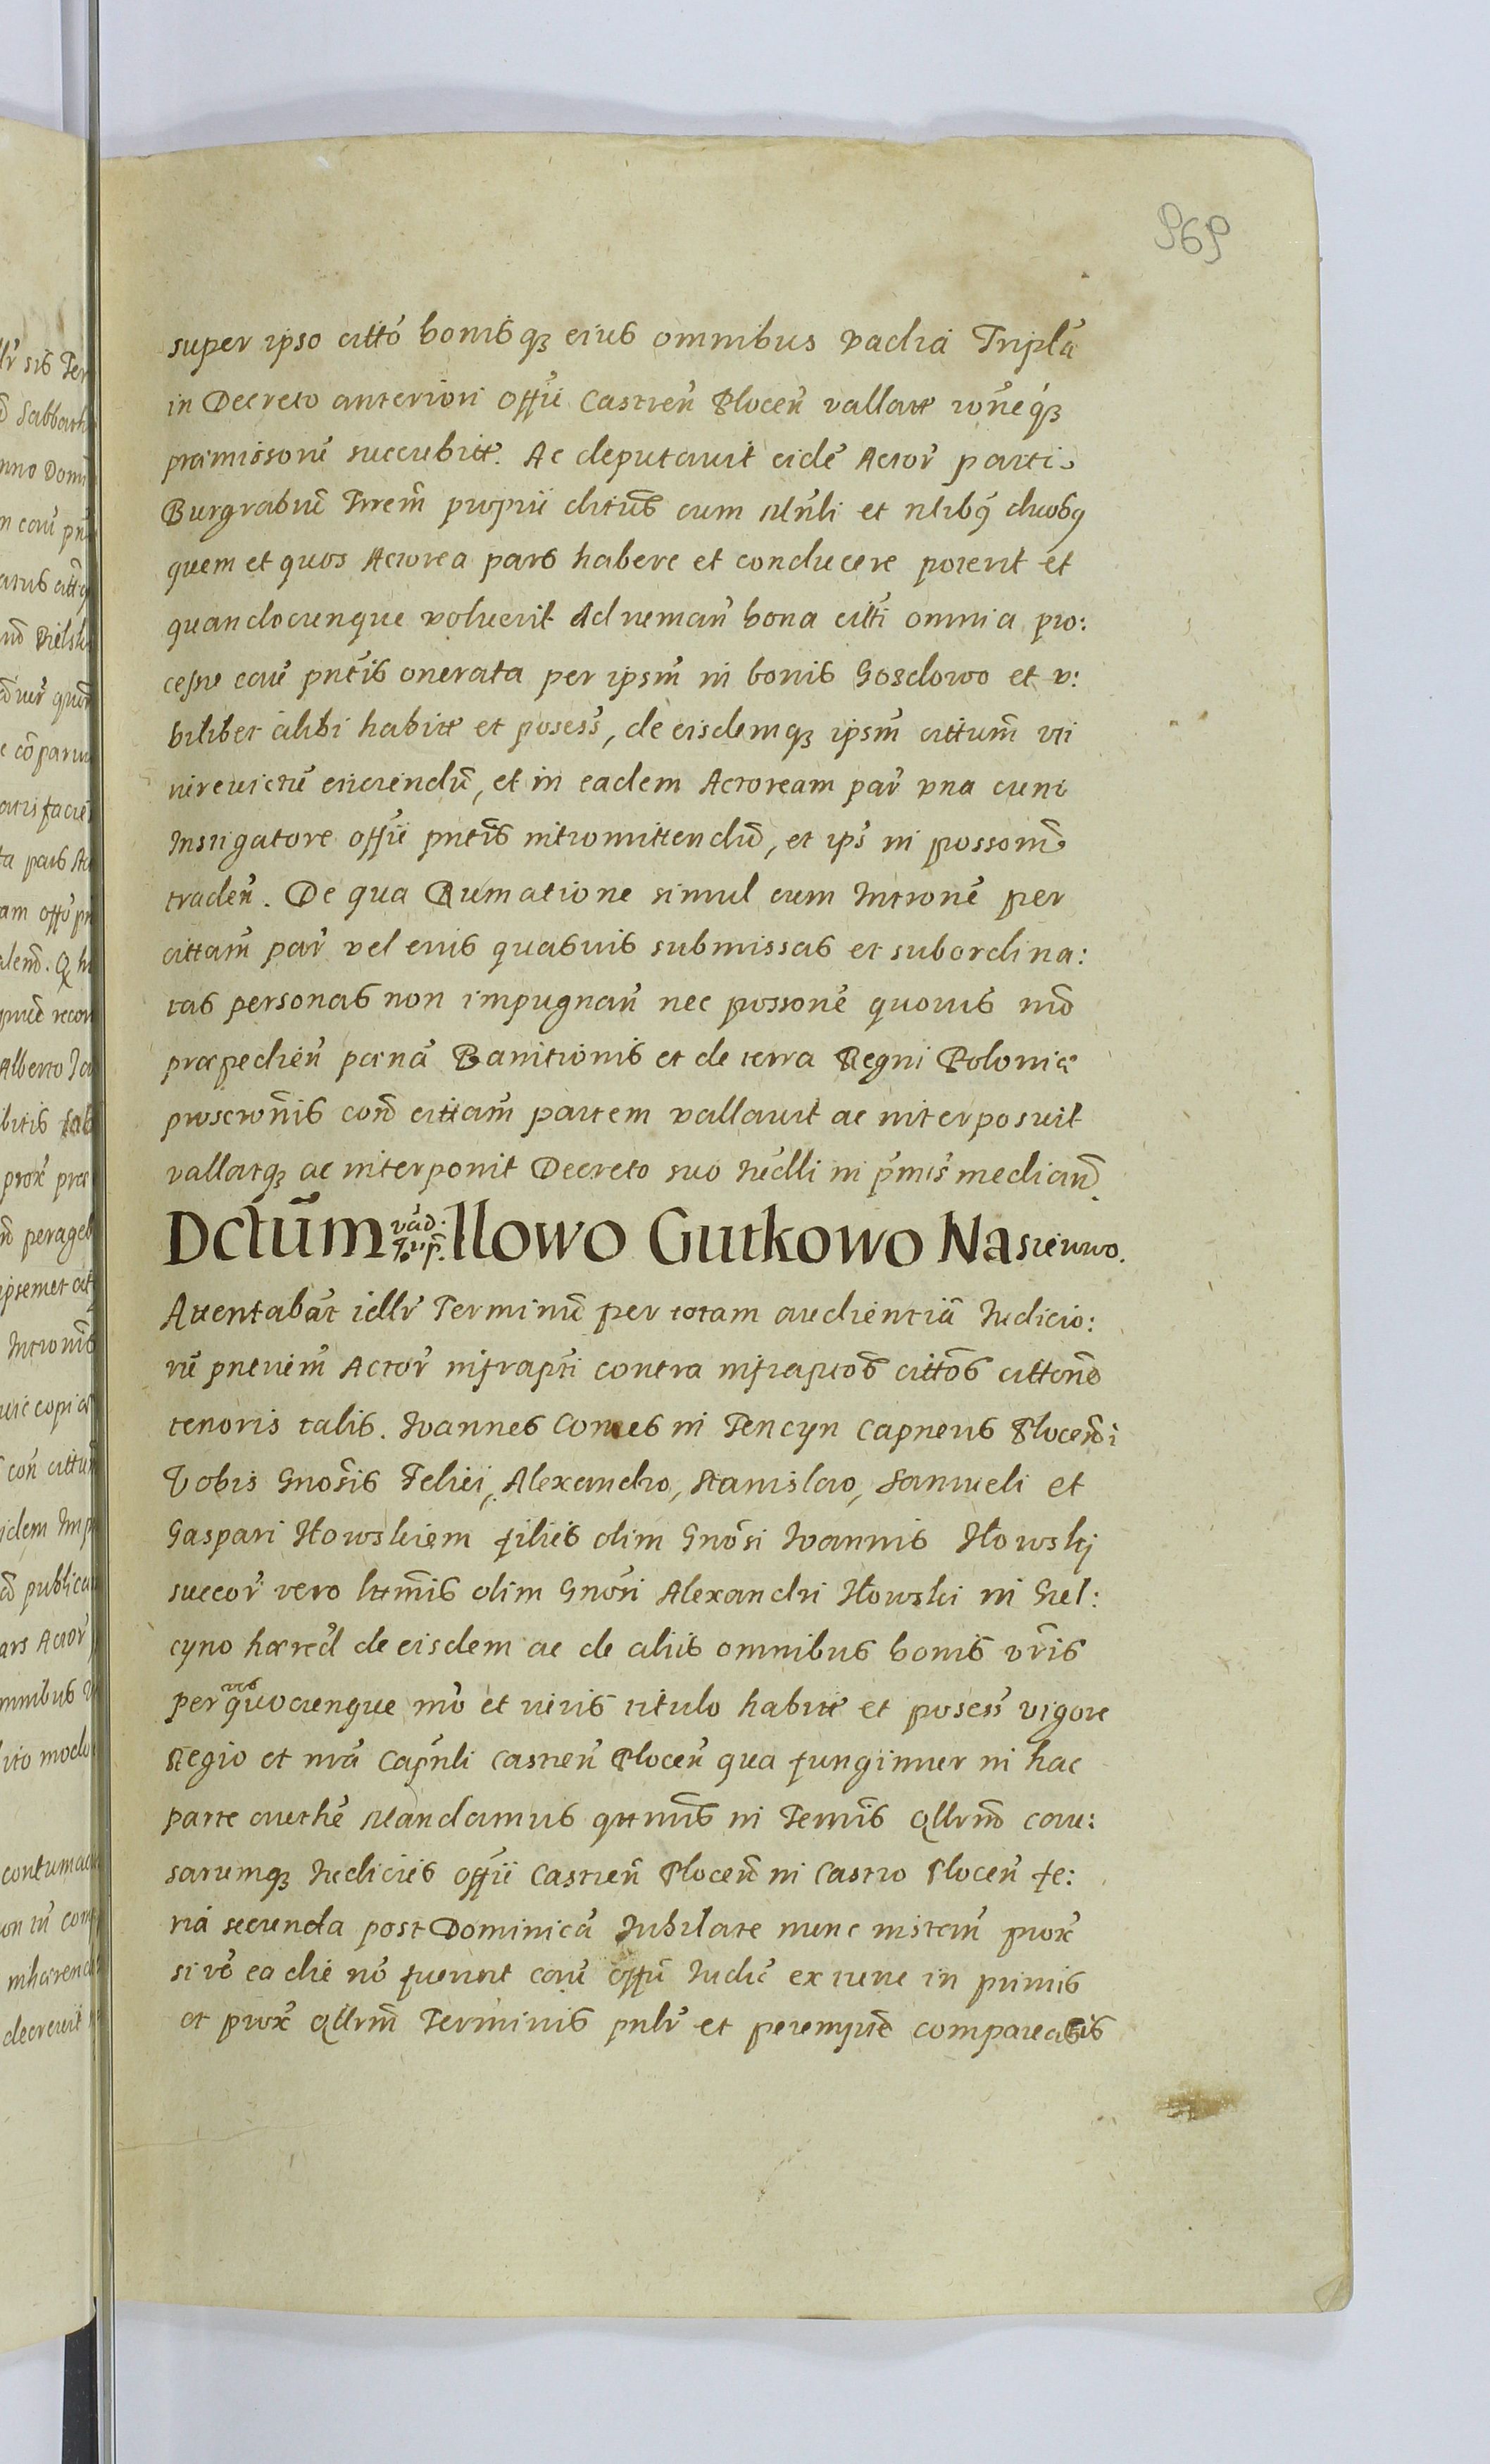 969
super ipso citto bonisq3 eius omnibus vadia Tripla
in Decreto anteriori Offii Castren Plocen vallatt roneq3
praemissorum succubitt. Ac deputavit eidem Actor parti
Burgrabium Trrem proprii ditus cum Mnli et Nlibq duobq
quem et quos Actorea pars habere et conducere poterit et
quandocunque voluerit Ad reman bona citti omnia pro:
cessu caue pntis onerata per ipsum in bonis Gosdowo et v:
bilibet alibi habitt et posess, de eisdemq3 ipsum cittum vti
iureuictum eiiciendum, et in eadem Actoream par vna cum
Instigatore offii pntis intromittendum, et ips in possonem
traden. De qua Rumatione simul cum Introne per
cittam par vel eius quasuis submissas et subordina:
tas personas non impugnan nec possone quouis mo
praepedien paena Banitionis et de terra Regni Poloniae
proscronis con cittam partem vallauit ac interposuit
vallatq3 ac interponit Decreto suo Iudlli in pmis median
Dctum vad. Trip. Ilowo Gutkowo Nasiewo.
Attentabat idlr Terminum per totam audientia Iudicio:
ru pntium Actor infrapti contra infraptos cittos cittone
tenoris talis. Ioannes Comes in Tencyn Capneus Plocensi
Vobis Gnosis Felici, Alexandro, Stanislao, Samueli et
Gaspari Ilowskiem filiis olim Gnosi Ioannis Ilowski
succor vero lttmis olim Gnosi Alexandri Ilowski in Giel:
cyno haered de eisdem ac de aliis omnibus bonis vris
per vos quocunque mo et iuris titulo habitt et posess vigore
Regio et nra Capnli Castren Plocen qua fungimur in hac
parte authe Mandamus qttnus in Termis qllrm cau:
sarumq3 Iudiciis offii Castren Plocen in Castro Plocen fe:
ria secunda post Dominica Iubilate nunc instan prox
si vo ea die no fuerint cau offii Iudic ex tunc in primis
et prox qllrm Terminis pnlr et peremptie compareatis